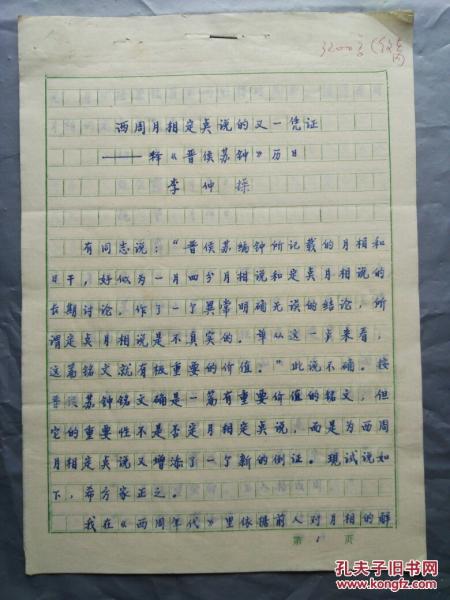 3200字(含图)
西周月相定点说的又一凭证
——释《晋侯苏钟》历日
李仲操
有同志说:“晋侯苏编钟所记载的月相和
日干,好似为一月四分月相说和定点月相说的
长期讨论,作了一个異常明确无误的结论,所
谓定点月相说是不真实的。单从这一点来看,
这篇铭文就有极重要的价值。”此说不确。按
晋侯苏钟铭文确是一篇有重要价值的铭文,但
它的重要性不是否定月相定点说,而是为西周
月相定点说又增添了一个新的例证。现试说如
下,希方家正之。
我在《西周年代》里依据前人对月相的解
第 1 页
孔夫子旧书网